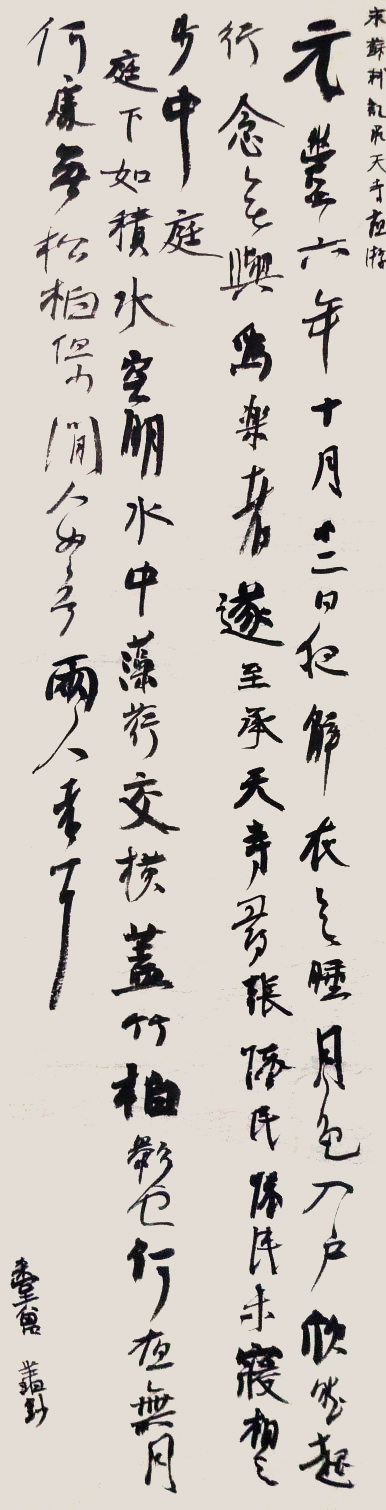 宋蘇軾記承天寺夜游
元豐六年十月十二日夜解衣欲睡月色入戶欣然起
行念無與為樂者遂至承天寺尋張懷民懷民未寢相與
步中庭
庭下如積水空明水中藻荇交橫蓋竹柏影也何夜無月
何處無松柏但少閒人如吾兩人者耳